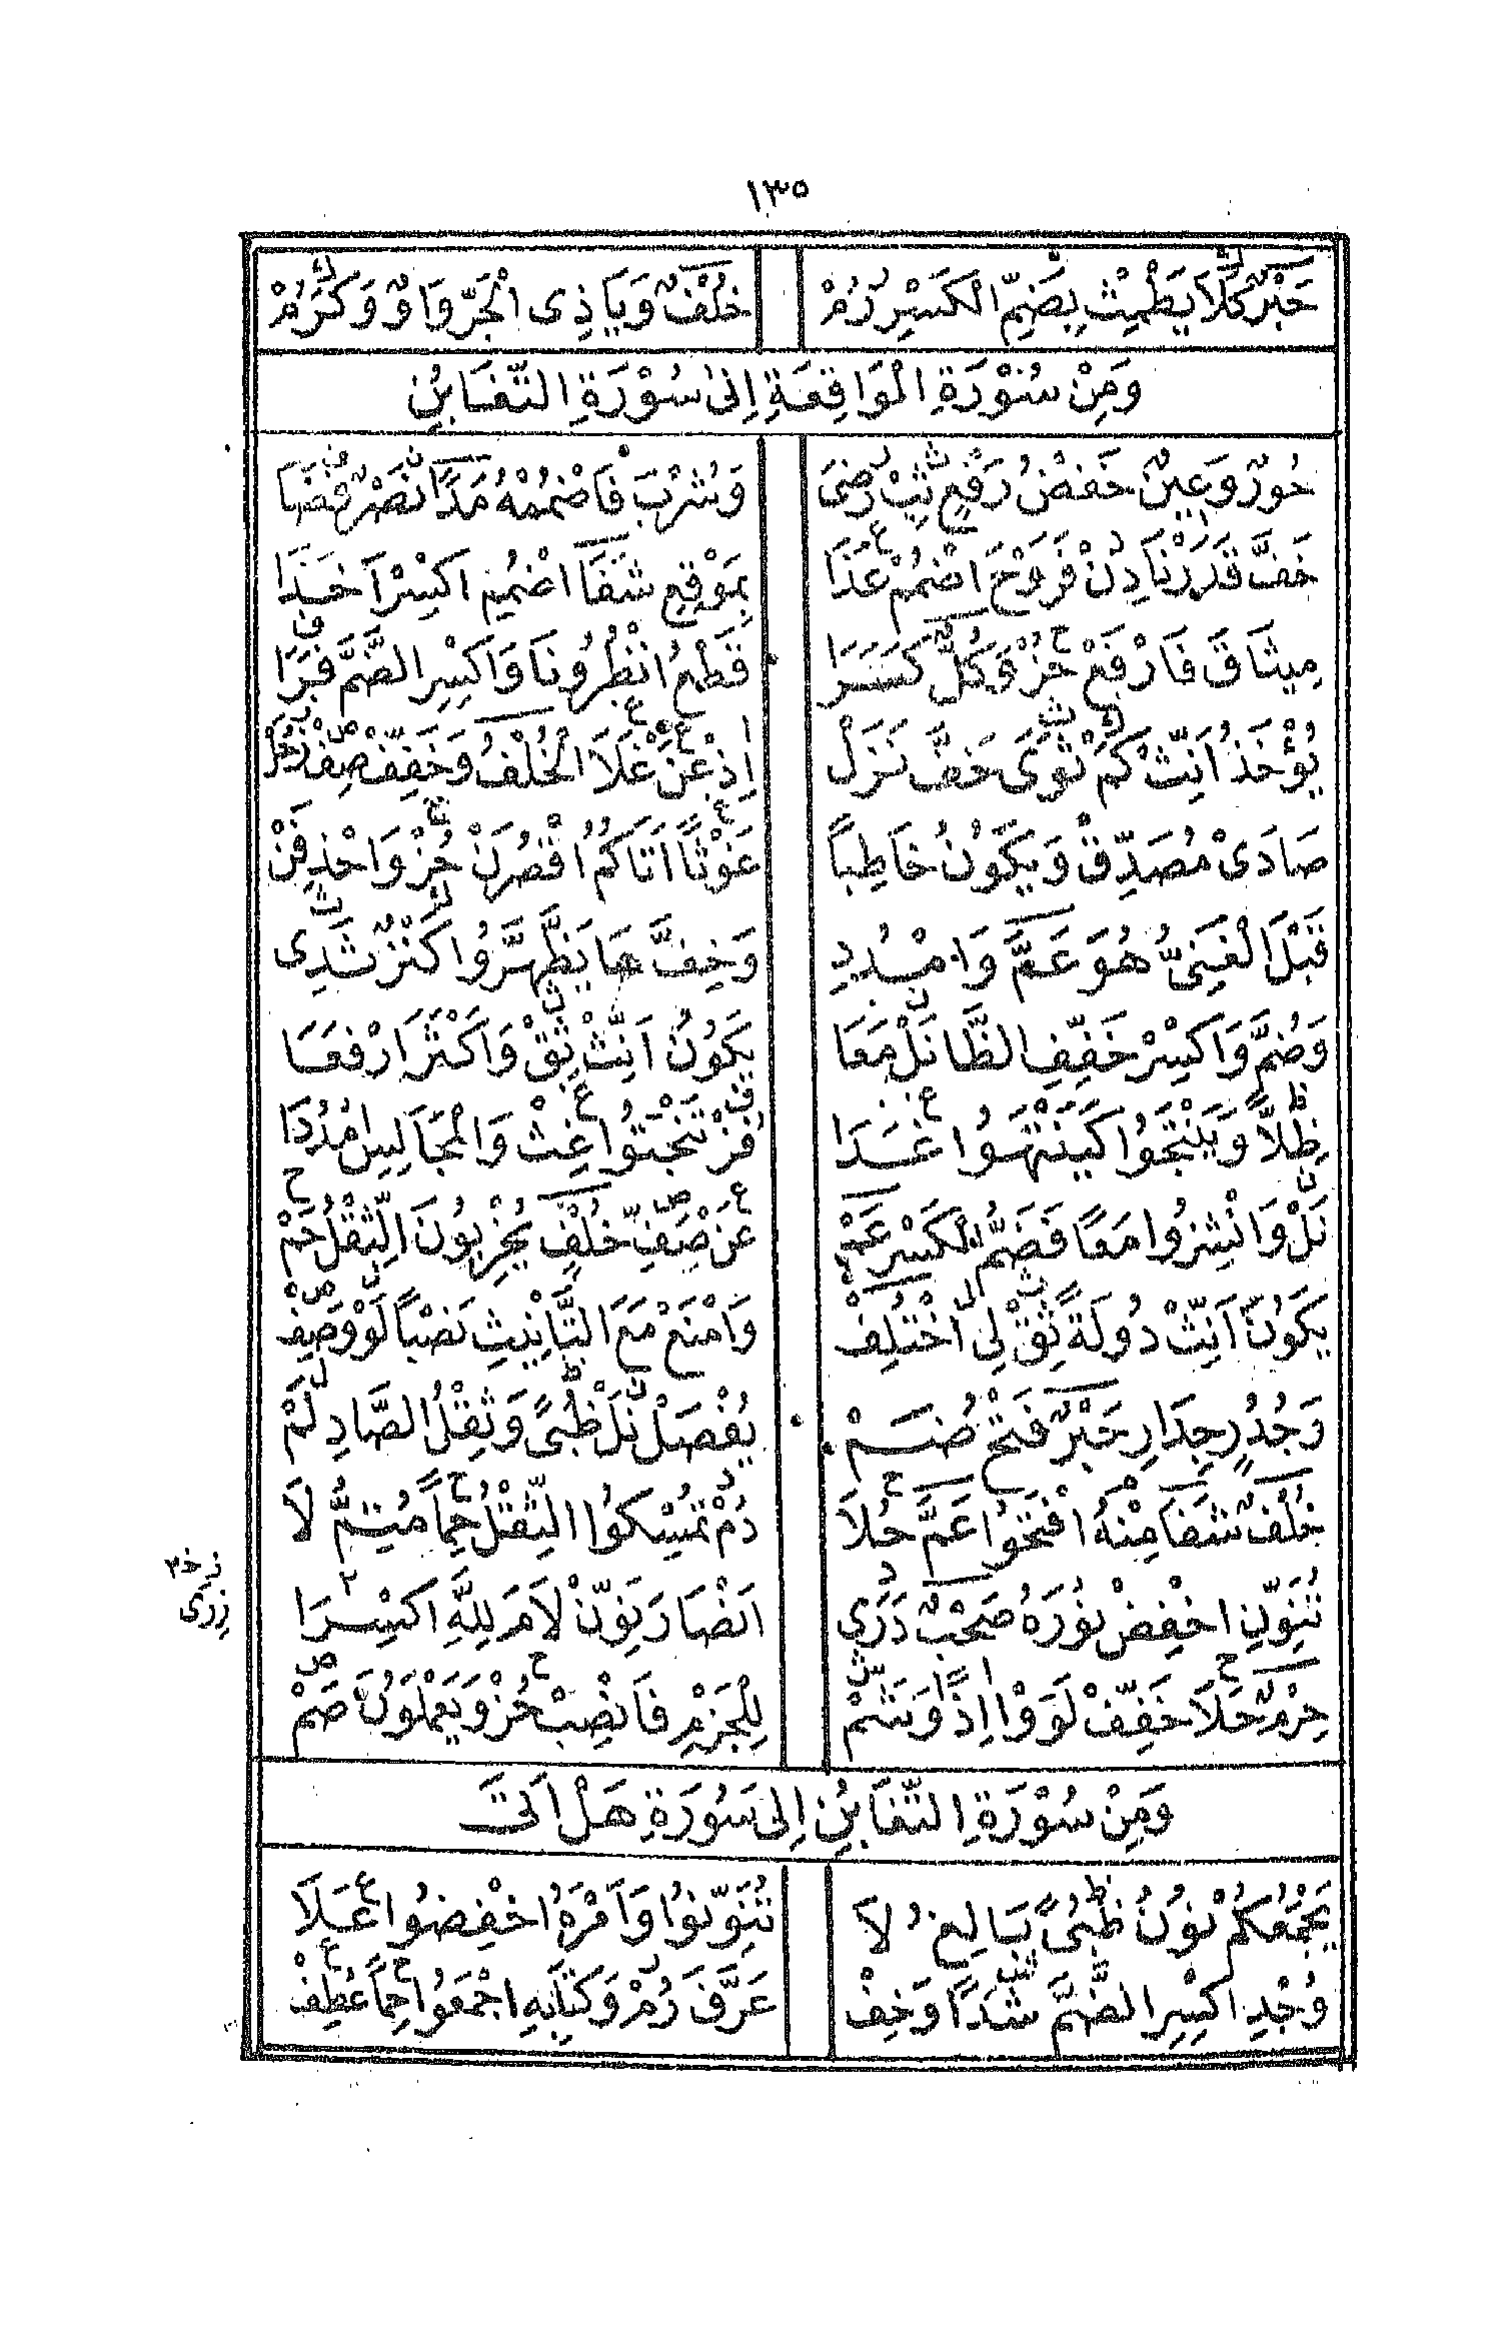 ١٣٥
حَبْرٌ كِلَا يَطْمِثْ بِضَمِّ الْكَسْرِ رُمْ خُلْفٌ وَيَا ذِى الْجَرِّ وَاوٌ وَكَرُمْ
وَمِنْ سُوْرَةِ الْوَاقِعَةِ اِلىٰ سُوْرَةِ التَّغَابُنِ
حُورٌ وَعِينٌ خَفْضُ رَفْعٍ ثِبْ رِضَى وَشُرْبَ فَاضْمُمْهُ مَدًا نَصْرٌ فَضَا
خَفَّ قَدَرْنَا دِنْ فَرَوْحَ اضْمُمْ غَذَا بِمَوْقِعِ شَفَا اضْمُمِ اكْسِرْ اَخَذَا
مِيثَاقَ فَارْفَعْ حُزْ وَكُلٌّ كَسَرَا قَطْعُ انْظُرُونَا وَاكْسِرِ الضَّمَّ فَرَا
يُوْخَذُ اَنِّثْ كَمْ ثَوَى خَفَّ نَزَلْ اِذْ عَنْ غَلَا الْخُلْفُ وَخَفِّفْ صِفْ دَخَلْ
صَادَىْ مُصَدِّقْ وَيَكُونُ خَاطِبًا غَوْثًا اَتَاكُمُ اقْصُرَنْ حُزْ وَاحْذِفَنْ
قَبْلَ الْغَنِىُّ هُوَ عَمَّ وَامْدُدِ وَخِفَّ هَا يَظَّهَّرُوا كَنْزٌ ثَدِى
وَضُمَّ وَاكْسِرْ خَفِّفِ الظَّا نَلْ مَعَا يَكُونُ اَنِّثْ ثِقْ وَاَكْثَرَ ارْفَعَا
ظِلًّا وَيَنْتَجُوا كَيَنْتَهَوا غَدَا فُزْ تَنْتَجُوا غِثْ وَالْمَجَالِسِ امْدُدَا
نَلْ وَانْشِزُوا مَعًا فَضَمُّ الْكَسْرِ عَمْ عَنْ صِفْ خُلْفٍ يُخْرِبُونَ الثِّقْلُ حَمْ
يَكُونَ اَنِّثْ دُولَةً ثِقْ لِى اخْتُلِفْ وَامْنَعْ مَعَ التَّانِيثِ نَصْبًا لَوْ وُصِفْ
وَجُدُرٍ جِدَارِ حَبْرٌ فَتْحُ ضَمْ يُفْصَلُ نَلْ ظُبًى وَثِقْلُ الصَّادِ لَمْ
خُلْفٌ شَفَا مِنْهُ افْتَحُوا عَمَّ حُلَا دُمْ تُمْسِكُوا الثِّقْلُ حِمًا مُتِمُّ لَا
تُنَوِّنِ اخْفِضْ نُورَهُ صَحْبٌ دَرَى اَنْصَارَ نَوِّنْ لَامَ لِلَّهِ اكْسِرَا
ن خ ٣
زرى
حِرْمٌ حَلَا خَفِّفْ لَوَوْا اِذًا وَشَمْ لِلْجَزْمِ فَانْصِبْ حُزْ وَيَعْمَلُونَ صَمْ
وَمِنْ سُوْرَةِ التَّغَابُنِ اِلى سُورَةِ هَلْ اَتَىٰ
يَجْمَعُكُمْ نُونُ ظُبًى بَالِغُ لَا تُنَوِّنُوا وَاَمْرَهُ اخْفِضُوا عَلَا
وُجْدِ اكْسِرِ الضَّمَّ شَذَا وَخِفْ عَرَّفَ رُمْ وَكِتَابِهِ اجْمَعُوا حِمًا عُطِفْ